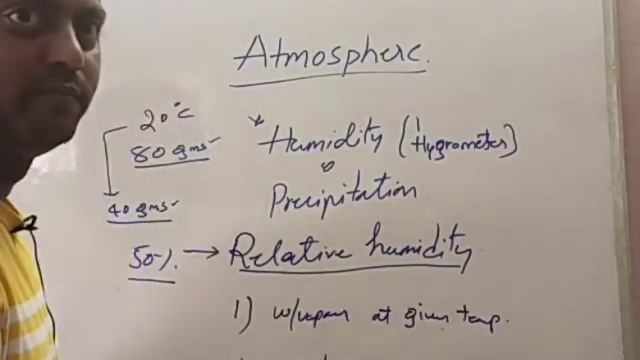 Atmosphere
20°C
80 gms
Humidity (Hygrometer)
Precipitation
40 gms
50% → Relative humidity
1) w/vapour at given temp.